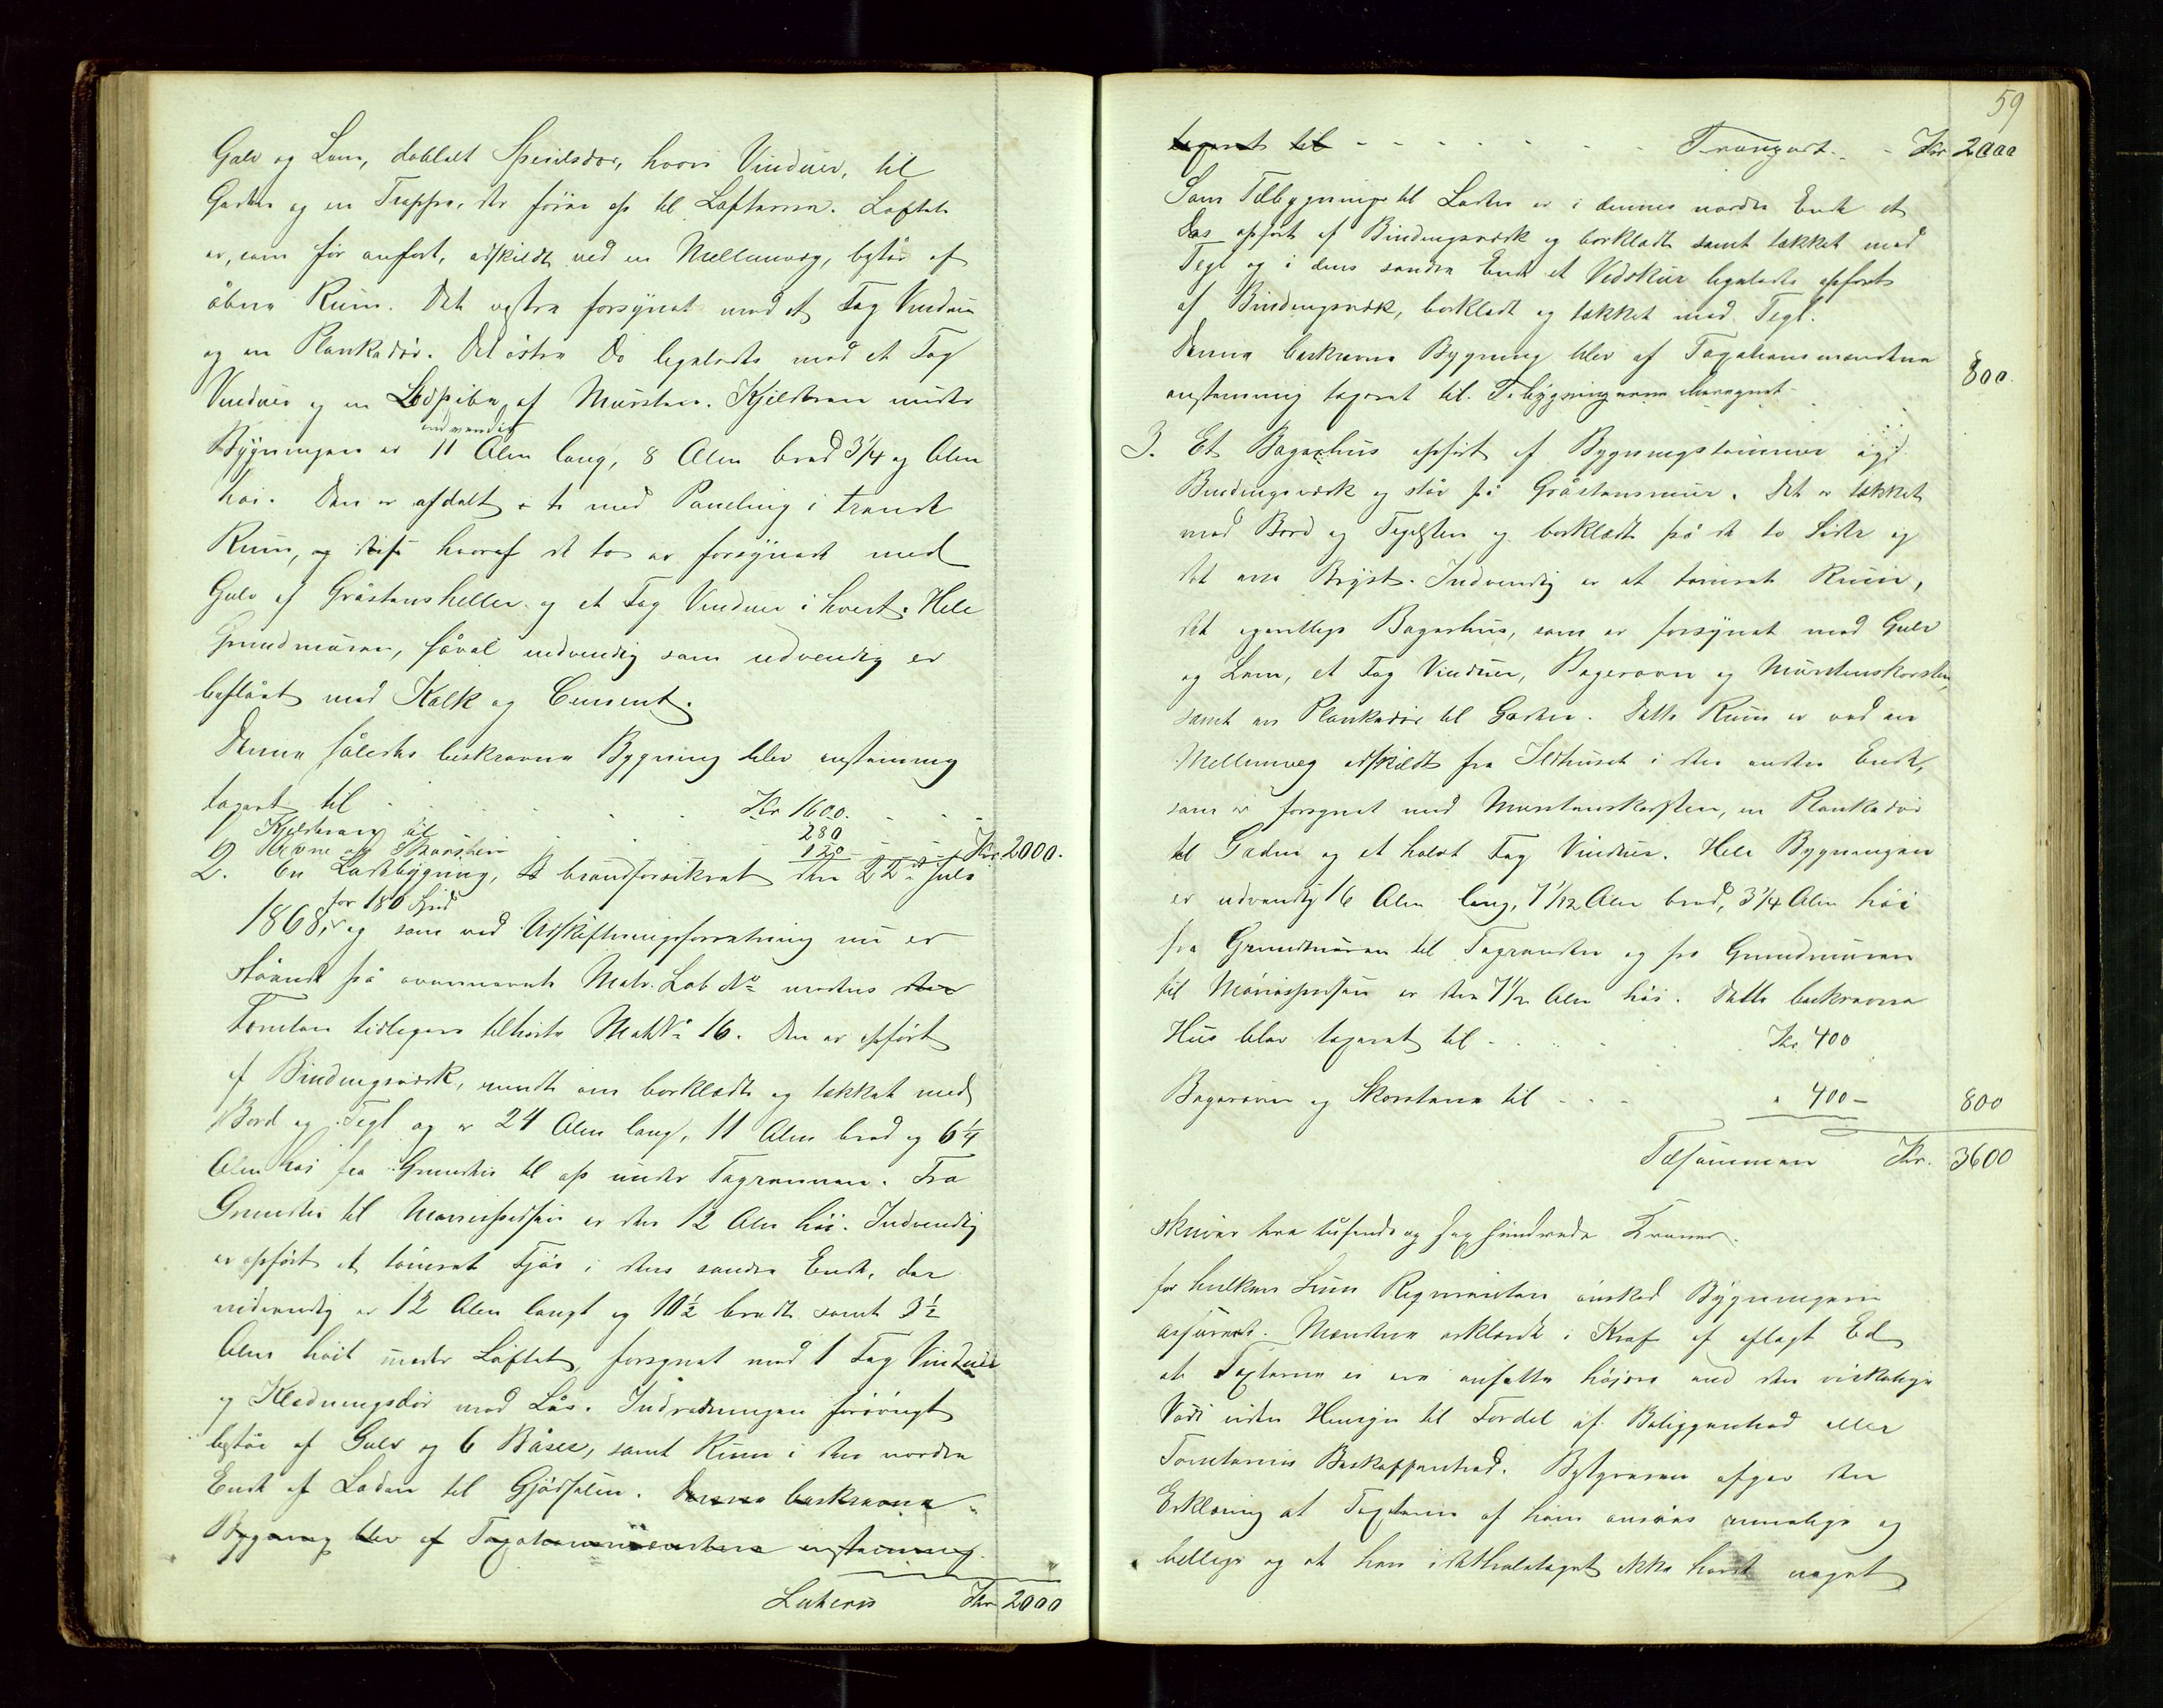 Gulv og Lem, dobbelt Speilsdør, hvori Vinduer, til
Gaden og en Trappe, der fører op til Lofterne. Loftet
er, som før anført, adskildt ved en Mellemvæg, består af
åbne Rum. Det vestre forsynet med et Fag Vinduer
og en Plankedør. Det østre Do ligeledes med et Fag
Vinduer og en Ildpibe af Mursten. Kjelderen under
indvendig
Bygningen er 11 Alen lang, 8 Alen bred 3 1/4 og Alen
høi. Den er afdelt i to med Paneling i trende
Rum, og hvoraf de to er forsynede med
Gulv af Gråstensheller og et Fag Vinduer i hvert. Hele
Grundmuren, såvel indvendig som udvendig er
beslået med Kalk og Cement.
Denne således beskrevne Bygning blev enstemmig
taxeret til Kr 1600.
Kjelderen til 280
Ovne og Skorsten 120 Kr 2000.
2. En Ladebygning, brandforsikret den 22de Juli
for 180 Spd
1868, og som ved Udskiftningsforretning nu er
stående på ovennævnte Matr. Lob No medens den
Tomten tidligere tilhørte Mat No 16. Den er opført
af Bindingsværk, rundt om bordklædt og tækket med
Bord og Tegl og er 24 Alen lang, 11 Alen bred og 6 1/4
Alen høi fra Grunden til op under Tagrennen. Fra
Grunden til Mønnispidsen er den 12 Alen høi. Indvendig
er opført et tømret Fjøs i dens søndre Ende, der
udvendig er 12 Alen langt og 10 1/2 bredt samt 3 1/2
Alen høit under Loftet, forsynet med 1 Fag Vinduer
og Klædningsdør med Lås. Indredningen forøvrigt
består af Gulv og 6 Båser, samt Rum i den nordre
Ende af Laden til Gjødselen. Denne beskrevne
Bygning blev af Taxationsmændene enstemmig
Lateris Kr 2000
59
taxeret til Transport Kr 2000
Som Tilbygning til Laden er i dennes nordre Ende et
Das opført af Bindingsværk og bordklædt samt tækket med
Tegl og i dens søndre Ende et Vedskur ligeledes opført
af Bindingsværk, bordklædt og tækket med Tegl.
Denne beskrevne Bygning blev af Taxationsmændene
enstemmig taxeret til. Tilbygningerne iberegnet 800.
3. Et Bagerhus opført af Bygningstømmer og
Bindingsværk og står på Gråstensmur. Det er tækket
med Bord og Teglsten og bordklædt på de to Sider og
det ene Bryst. Indvendig er et tømret Rum,
det egentlige Bagerhus, som er forsynet med Gulv
og Lem, et Fag Vinduer, Bagerovn og Murstenskorsten,
samt en Plankedør til Gaden. Dette Rum er ved en
Mellemvæg adskildt fra Ildhuset i den anden Ende,
som er forsynet med Murstenskorsten, en Plankedør
til Gaden og et halvt Fag Vinduer. Hele Bygningen
er udvendig 16 Alen lang, 7 1/12 Alen bred, 3 1/4 Alen høi
fra Grundmuren til Tagrenden og fra Grundmuren
til Mønnispidsen er den 7 1/2 Alen høi. Dette beskrevne
Hus blev taxeret til Kr. 400
Bagerovn og Skorstene til " 400 – 800
Tilsammen Kr. 3600
skriver tre tusende og sex hundrede Kroner.
for hvilken Sum Requirenten ønsked Bygningerne
assureret. Mændene erklærede i Kraft af aflagt Ed
at Taxterne er ere ansatte høiere end den virkelige
Værdi uden Hensyn til Fordel af Beliggenhed eller
Tomternes Beskaffenhed. Byskriveren afgav den
Erklæring at Taxterne af ham ansåes rimelige og
billige og at han idethelet taget ikke havde noget